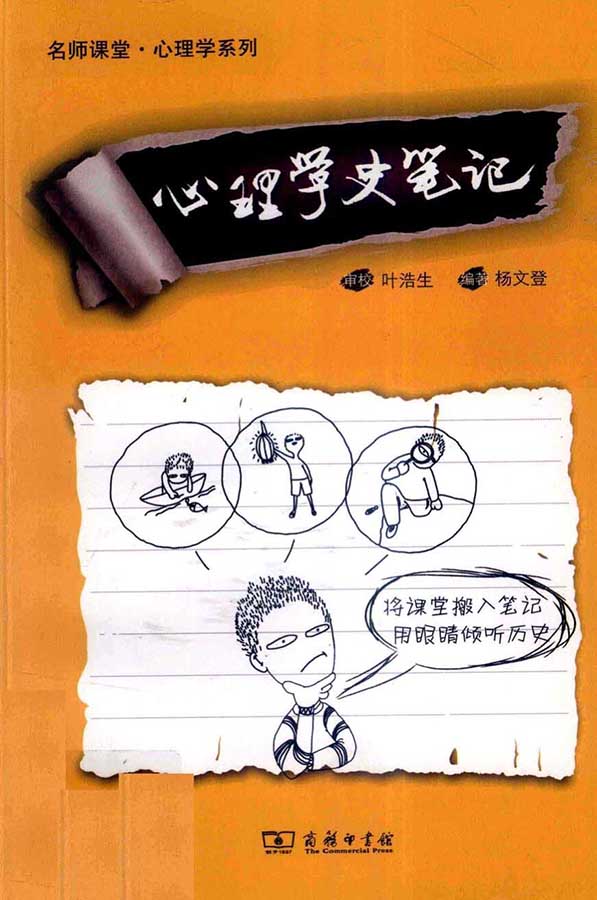 名师课堂·心理学系列
心理学史笔记
审校 叶浩生 编著 杨文登
将课堂搬入笔记
用眼睛倾听历史
创于1897
商务印书馆
The Commercial Press